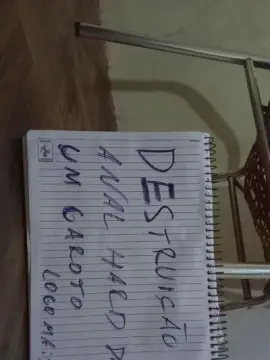 DESTRUIÇÃO
ANAL HARD
UM GAROTO
LOGO